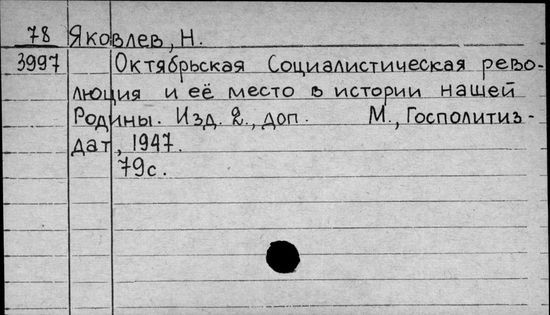 78 Яковлев, Н.
3997 Октябрьская Социалистическая рево-
люция и её место в истории нашей
Родины. Изд. 2., доп. М., Госполитиз-
дат, 1947.
79с.